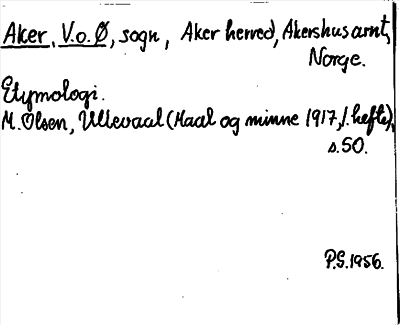 Aker, V.o.Ø, sogn, Aker herred, Akershus amt,
Norge.
Etymologi.
M. Olsen, Ullevaal (Maal og minne 1917, 1. hefte),
s.50.
P.G.1956.